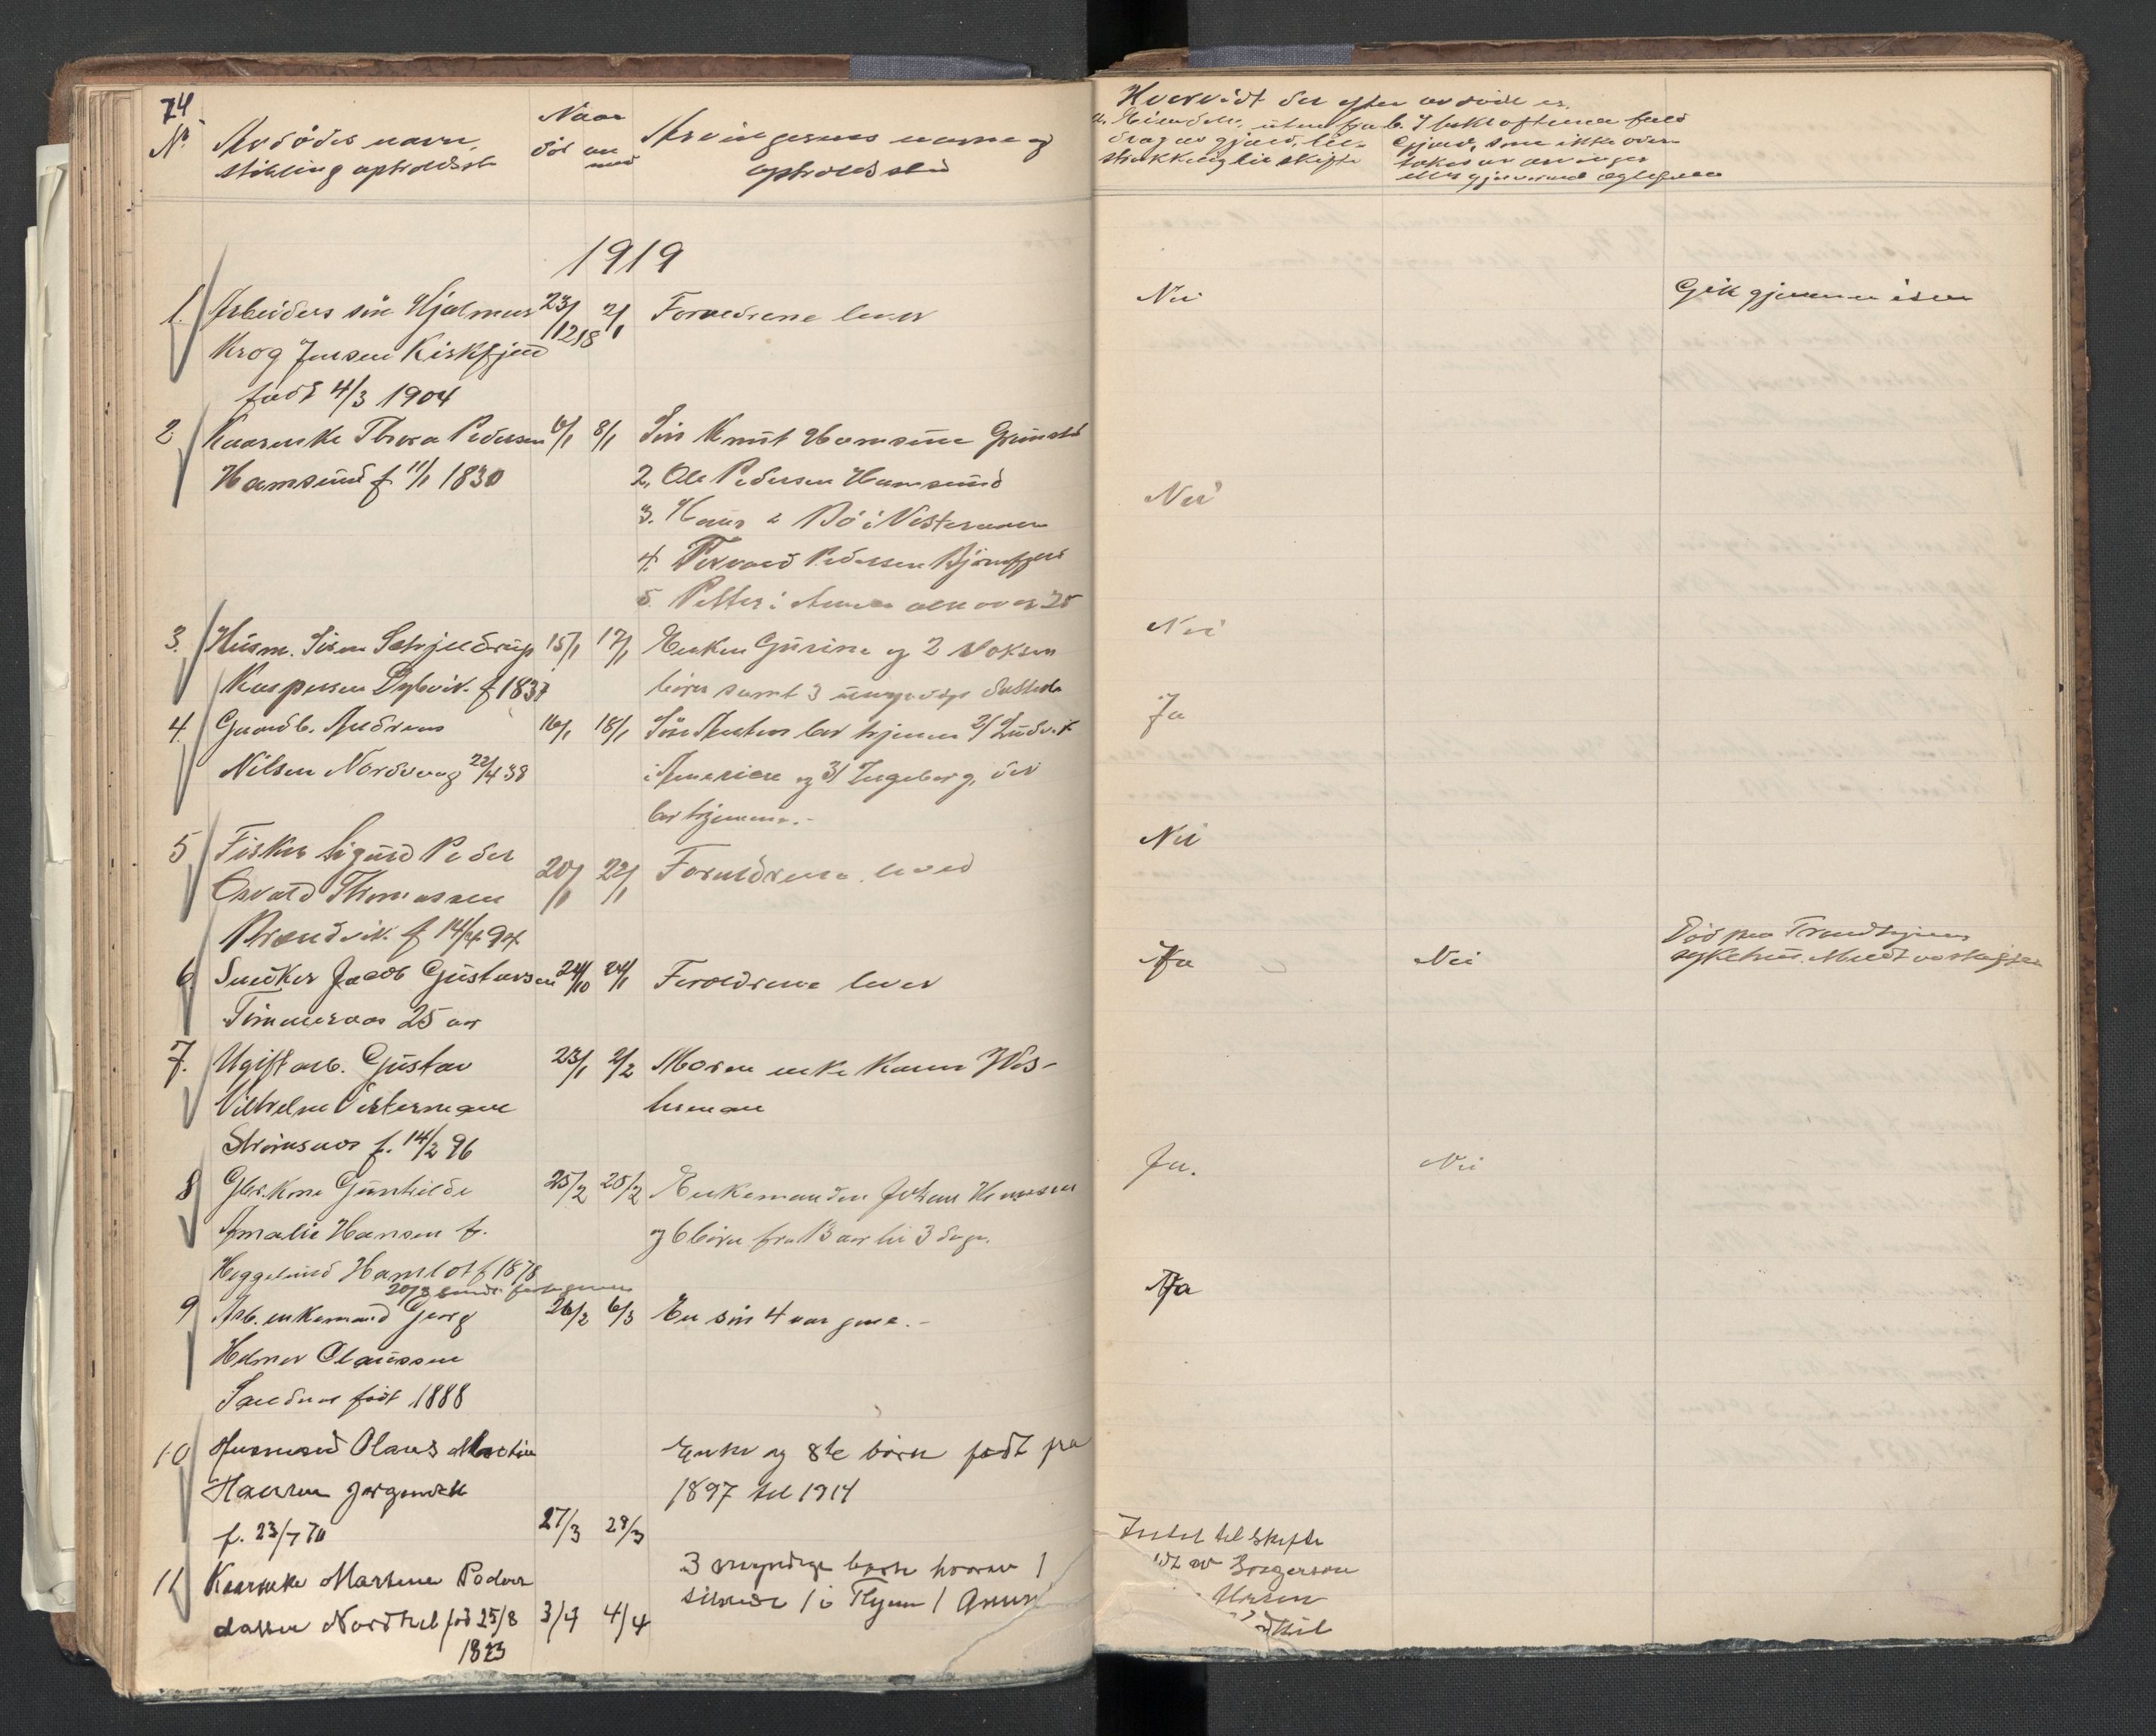 74
No
Avdødes navn,
stilling opholdsst
Naar
død an
med
Arvingernes navne og
opholdssted
Hvorvidt der efter avdøde er
a. Eiendele, uten fra b. I bekræftende fald
drag av gjæld, til- Gjæld, som ikke over-
strækkelig til skifte takes av arvinger
eller gjenlevende ægtefælle
1919
1. Arbeiders søn Hjalmar 23/12 18 2/1 Forældrene lever Nei Gik gjennem isen
Krog Jensen Kirkfjord
født 4/3 1904
2. Kaarenke Thora Pedersen 6/1 8/1 Søn Knut Hamsun Grimstad
Hamsund f 11/1 1830 2. Ole Pedersen Hamsund Nei
3. Hans i Bö i Vesteraalen
4. Torvald Pedersen Bjørnfjeld
5. Petter i Amerika alle over 25
3. Husm. Sören Schjelderup 15/1 17/1 Enken Gurine og 2 voksne Nei
Kaspersen Dybvik f 1837 børn samt 3 umyndige datterb
4. Gaardb. Andreas 16/1 18/1 Søn Martin bor hjemme 2/ Ludvik Ja
Nilsen Nordvaag 22/4 38 i Amerika og 3/ Ingeborg, der
bor hjemme.-
5 Fisker Sigurd Peder 20/1 22/1 Forældrene leved Nei
Osvald Thomassen
Brændvik f 14/4 94
6 Snekker Jacob Gustavsen 24/10 24/1 Forældrene lever Ja Nei Død paa Trondhjems
sykehus.
Tømmeraas 25 aar
7. Ugift arb. Gustav 23/1 2/2 Moren enke Karen Wes-
Vilhelm Vesterman terman
Strømsnes f. 14/2 96
8 Gbr. kone Gunhilde 25/2 25/2 Enkemanden Johan Hansen Ja. Nei
Amalie Hansen f. og 6 børn fra 13 aar til 3 dage.
Heggelund Hamlot f 1878
9 Arb. enkemand Georg 26/2 6/3 En søn 4 aar gml.- Ja
Helmer Claussen
født 1888
10 Husmand Olaus Martin Enke og 8te børn født fra
Hansen 1897 til 1914
f. 23/7 70 27/3 29/3 Intet til skifte
11 Kaarenke Martine Peder 3 myndige børn hvorav 1
dassen Nordkil fød 25/8 3/4 4/4
1823